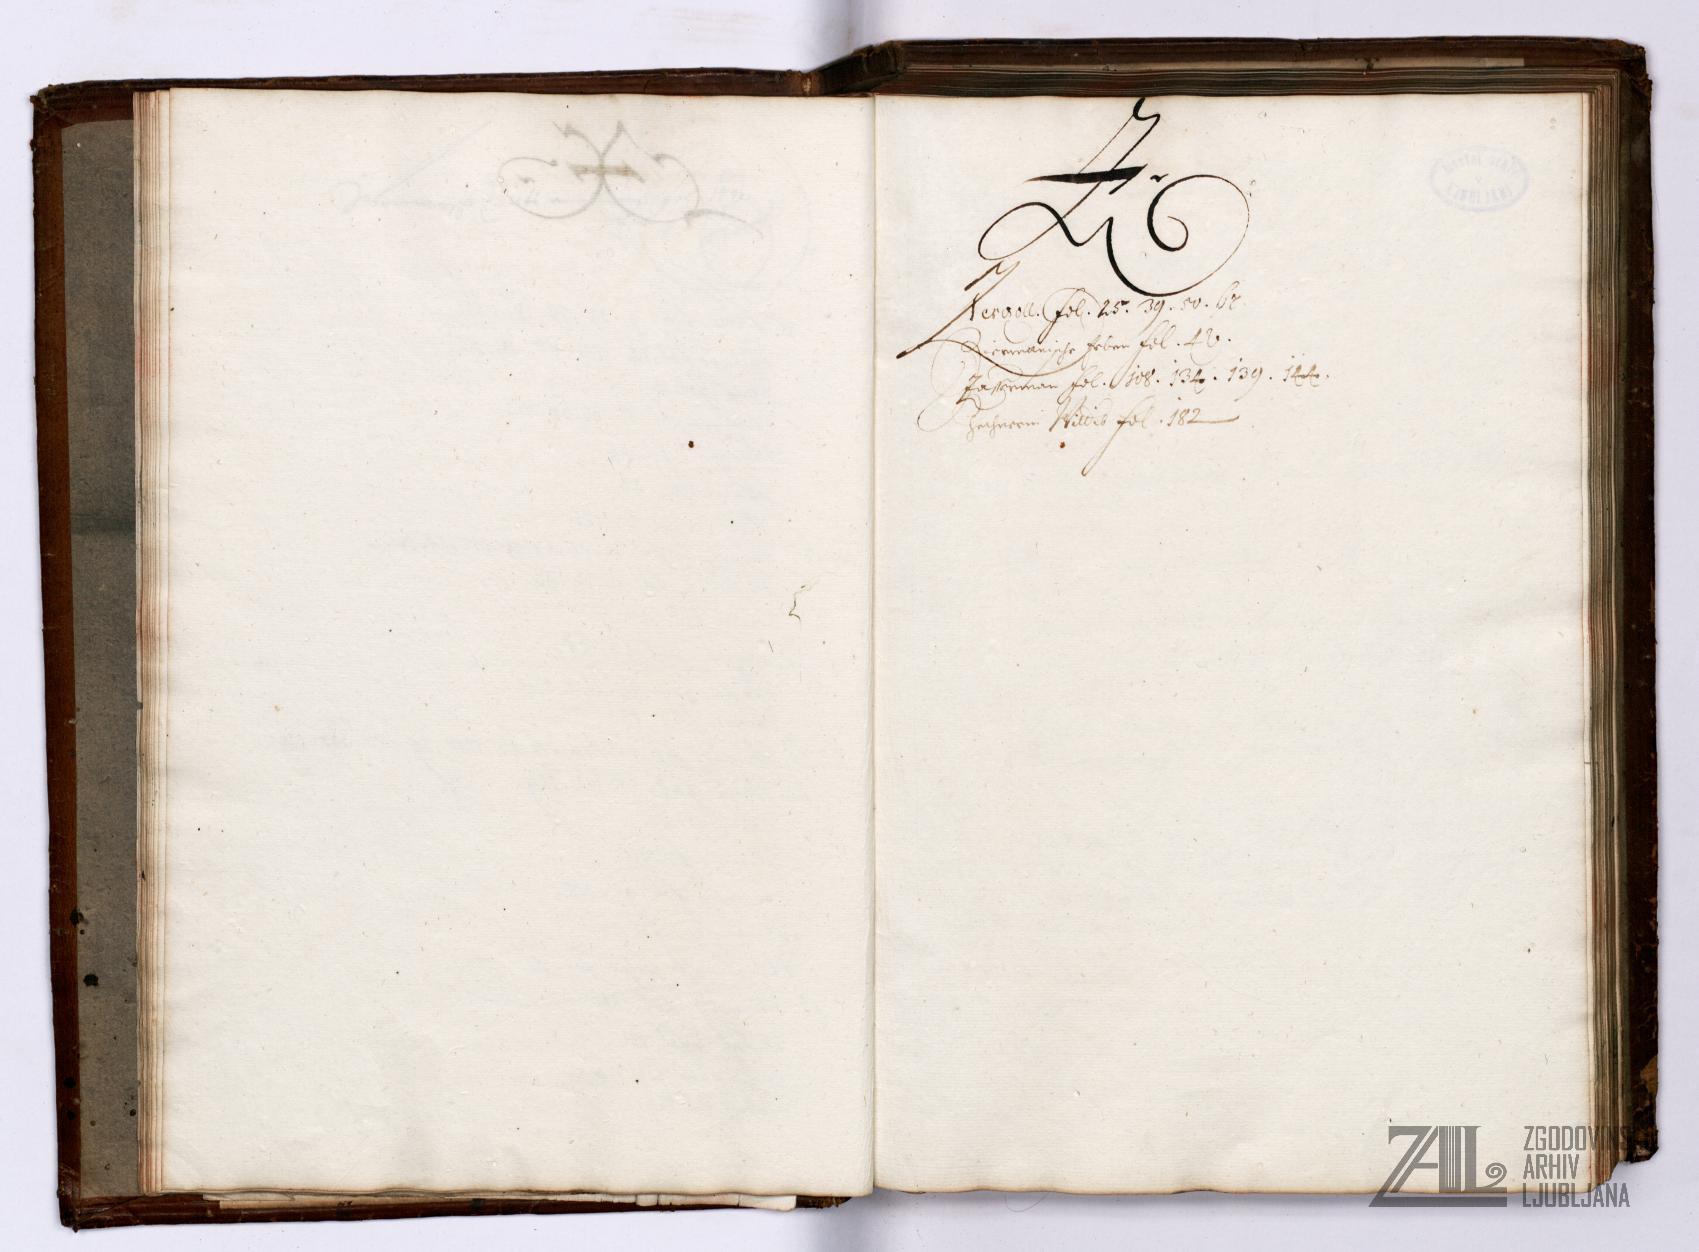 Z.
Mestni arhiv
v
LJUBLJANI
Zergoll. fol. 25. 39. 50. 62.
Ziermanische Erben fol. 48.
Zasserman fol. 108. 134. 139. 144.
Wittib fol. 182
ZAL ZGODOVINSKI
ARHIV
LJUBLJANA